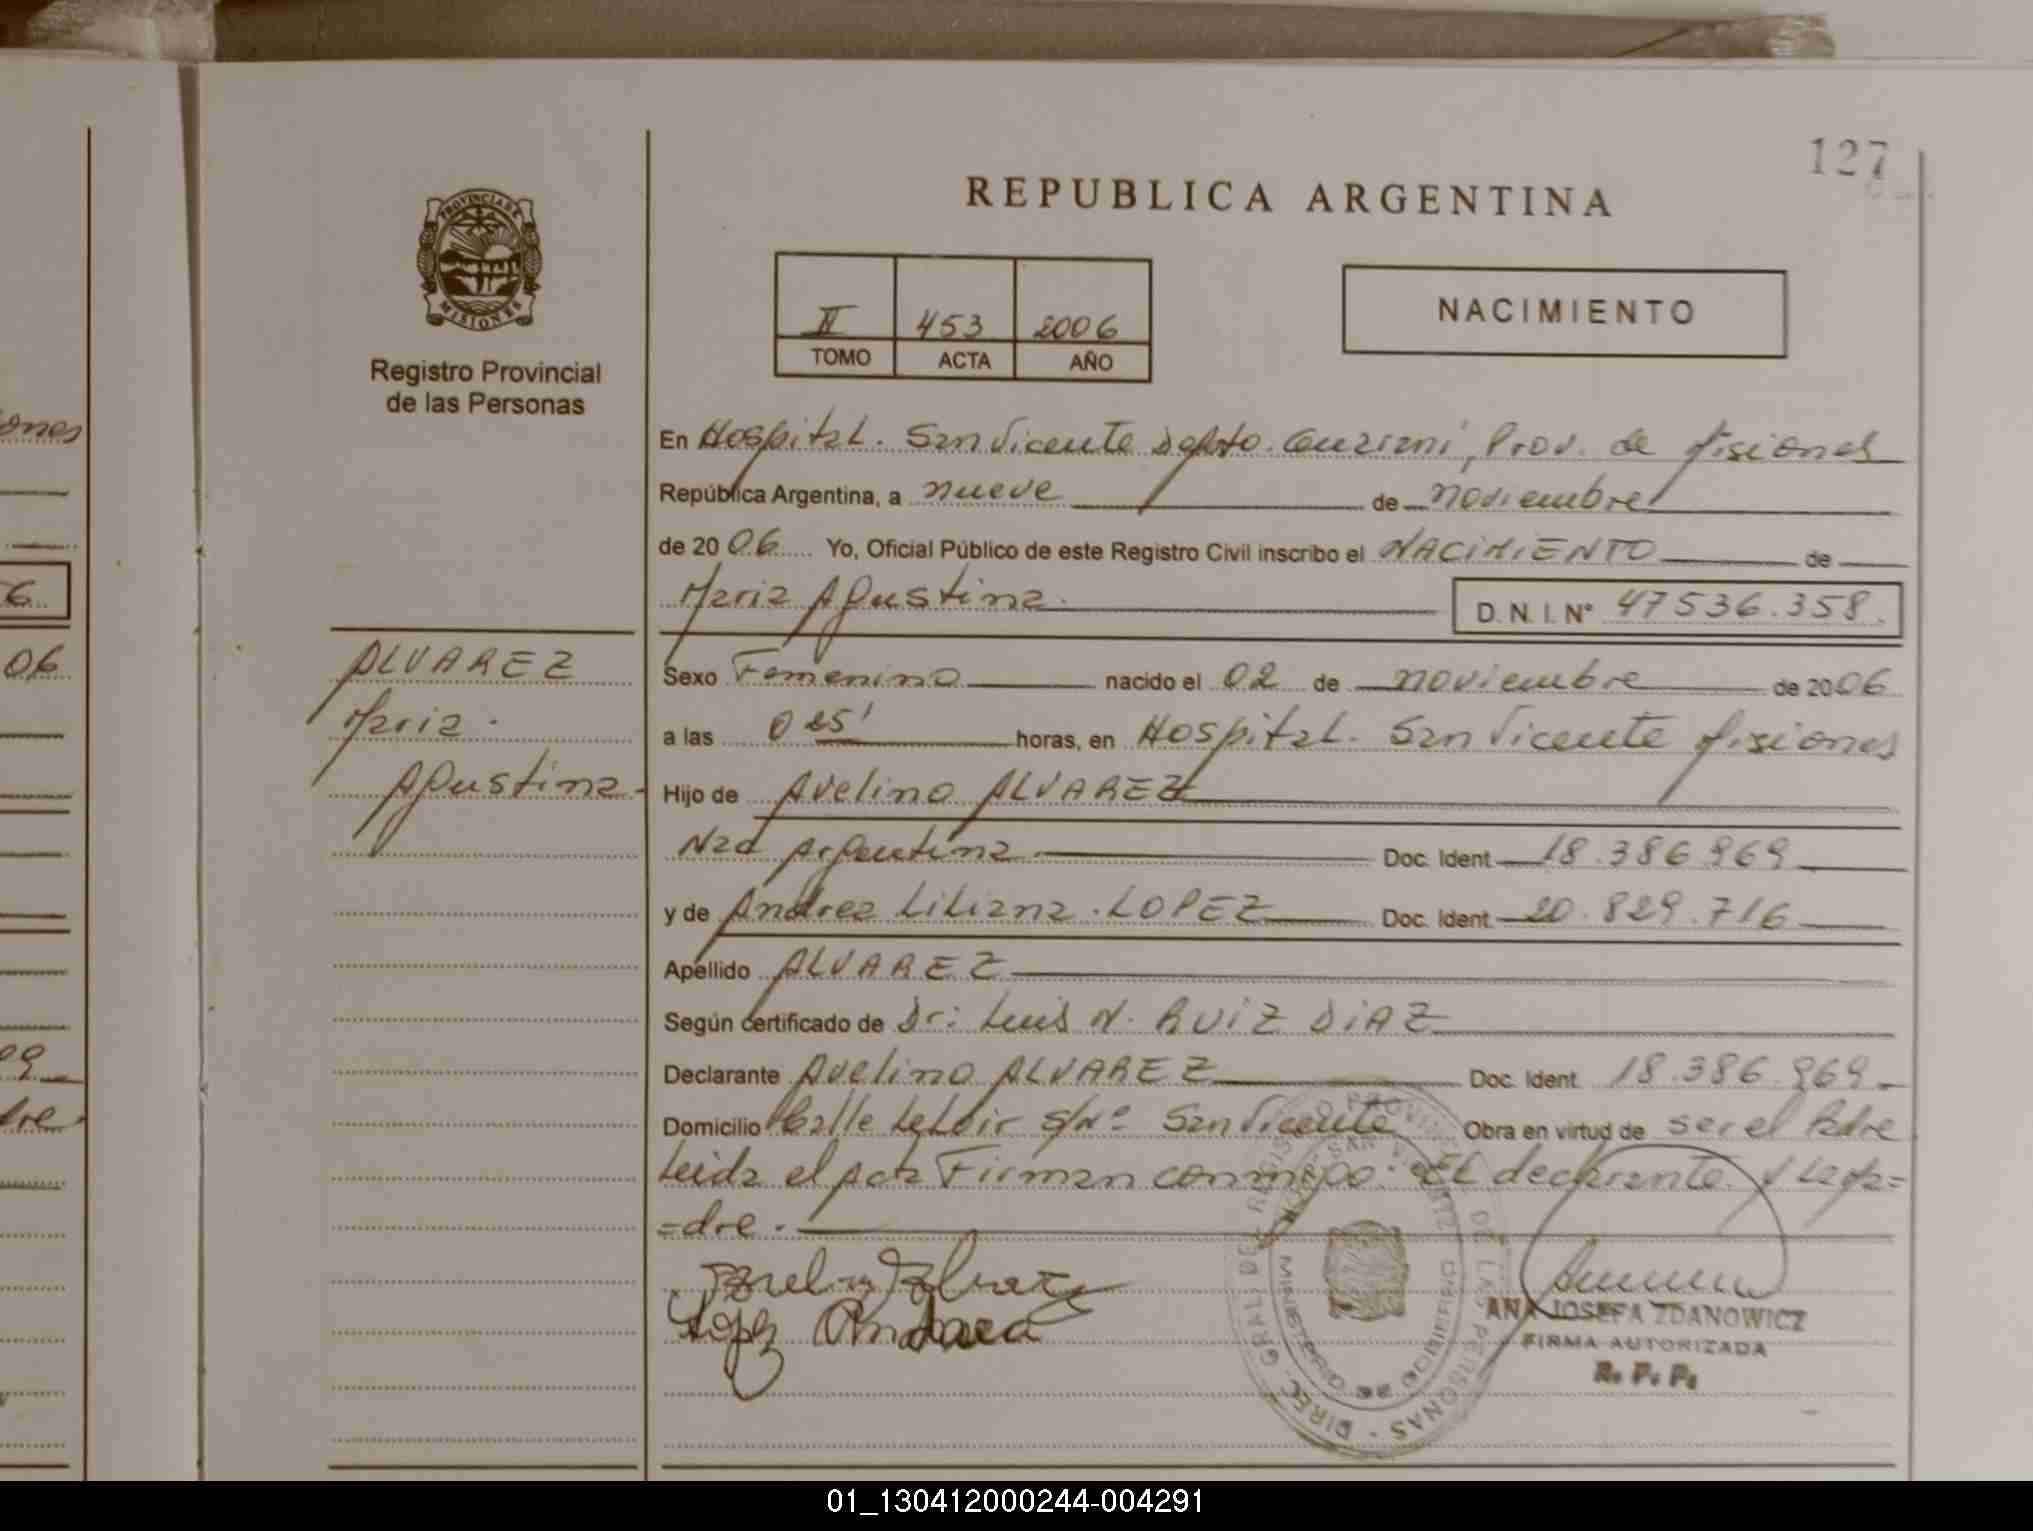 127
REPUBLICA ARGENTINA
PROVINCIA DE
MISIONES
Registro Provincial
de las Personas
II 453 2006
TOMO ACTA AÑO
NACIMIENTO
ones
En Hospital. San Vicente Depto. Guarani, Prov. de Misiones
República Argentina, a nueve de noviembre
de 2006 Yo, Oficial Público de este Registro Civil inscribo el NACIMIENTO de
Maria Agustina.
D. N. I. Nº 47536.358.
6
06
ALVAREZ
Maria.
Agustina
Sexo Femenino nacido el 02 de noviembre de 2006
a las 0 25' horas, en Hospital. San Vicente Misiones
Hijo de Avelino ALVAREZ
Nac Argentina Doc. Ident. 18.386.969
y de Andrea Liliana. LOPEZ Doc. Ident. 20.829.716
Apellido ALVAREZ
Según certificado de Dr: Luis N. RUIZ DIAZ
Declarante Avelino ALVAREZ Doc. Ident. 18.386.969
Domicilio Calle Leloir s/Nº San Vicente Obra en virtud de ser el Padre
Leida el Acta Firman conmigo: El declarante y La Ma=
=dre.
Lopez Andrea
ANA JOSEFA ZDANOWICZ
FIRMA AUTORIZADA
R. P. P.
DIREC. GRAL. DEL REGISTRO PROVINCIAL DE LAS PERSONAS
MINISTERIO DE GOBIERNO
01_130412000244-004291